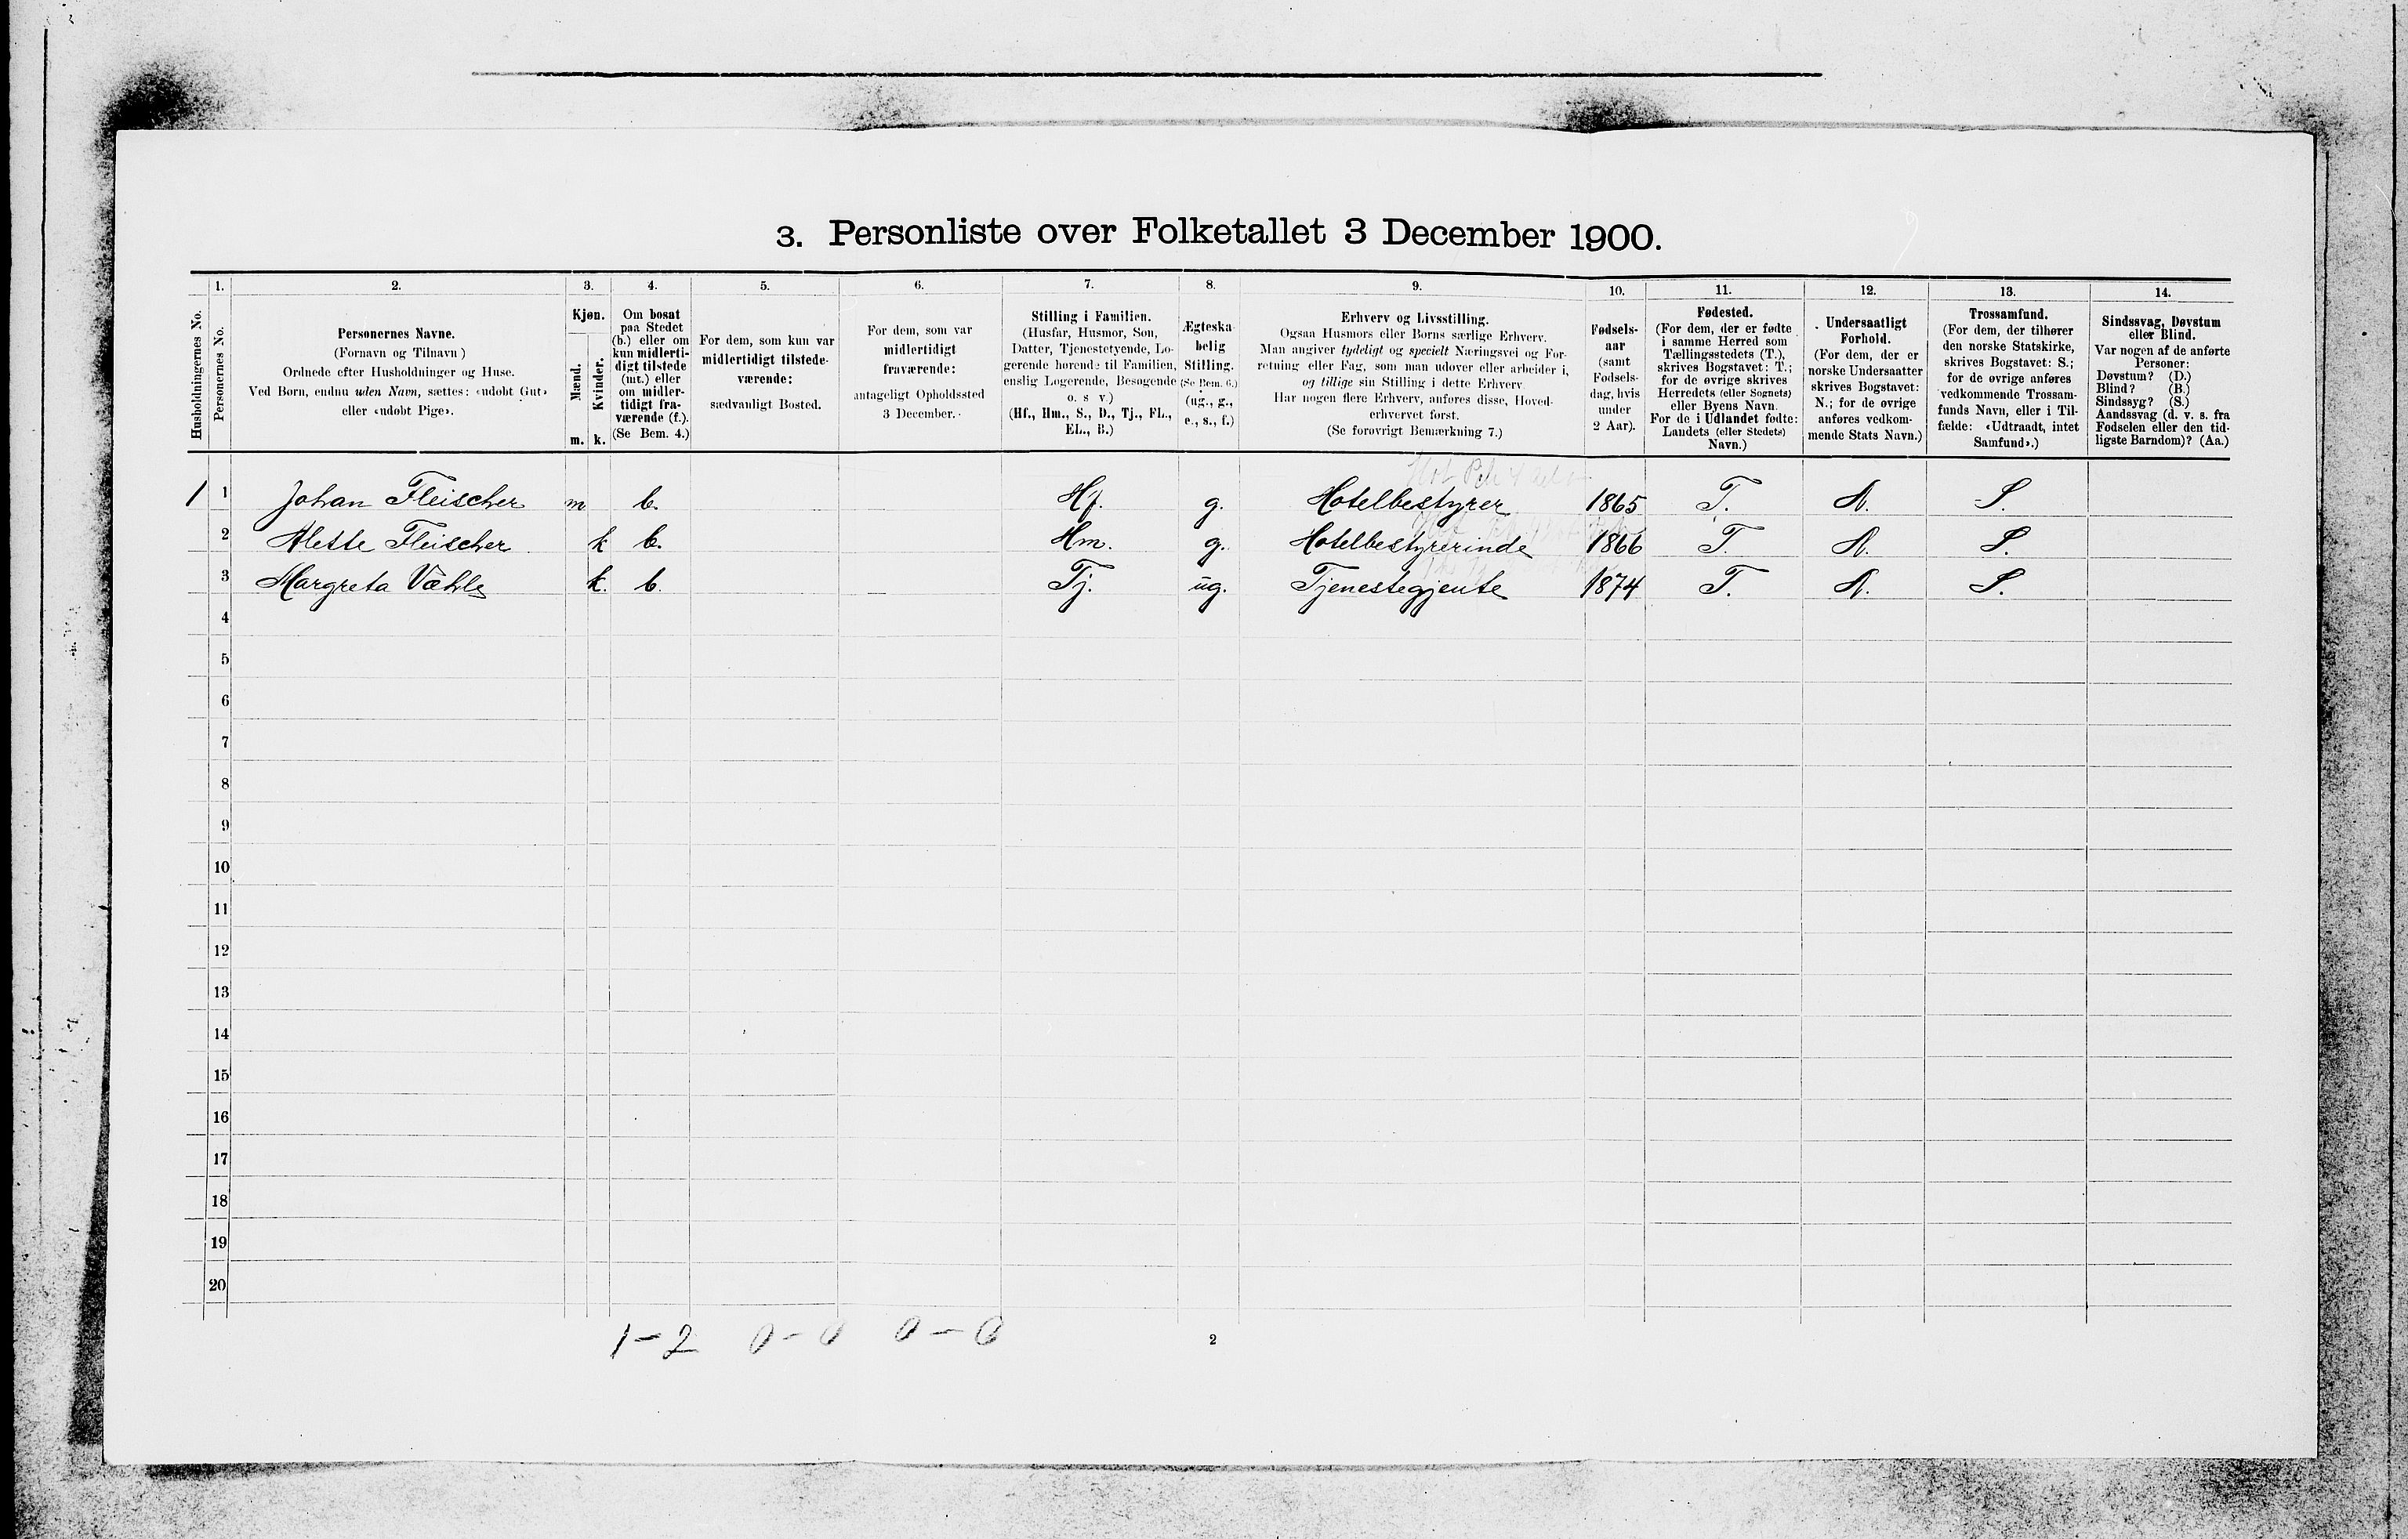 3. Personliste over Folketallet 3 December 1900.
1. 2. 3. 4. 5. 6. 7. 8. 9. 10. 11. 12. 13. 14.
Husholdningernes No.
Personernes No.
Personernes Navne.
(Fornavn og Tilnavn)
Ordnede efter Husholdninger og Huse.
Ved Børn, endnu uden Navn, sættes: «udøbt Gut»
eller «udøbt Pige».
Kjøn.
Mænd.
Kvinder.
m. k.
Om bosat
paa Stedet
(b.) eller om
kun midlerti-
digt tilstede
(mt.) eller
om midler-
tidigt fra-
værende (f.).
(Se Bem. 4.)
For dem, som kun var
midlertidigt tilstede-
værende:
sædvanligt Bosted.
For dem, som var
midlertidigt
fraværende:
antageligt Opholdssted
3 December.
Stilling i Familien.
(Husfar, Husmor, Søn,
Datter, Tjenestetyende, Lo-
gerende hørende til Familien,
enslig Logerende, Besøgende
o. s. v.)
(Hf., Hm., S., D., Tj., FL.,
EL., B.)
Ægteska-
belig
Stilling.
(Se Bem. 6.)
(ug., g.,
e., s., f.)
Erhverv og Livsstilling.
Ogsaa Husmors eller Børns særlige Erhverv.
Man angiver tydeligt og specielt Næringsvei og For-
retning eller Fag, som man udøver eller arbeider i,
og tillige sin Stilling i dette Erhverv.
Har nogen flere Erhverv, anføres disse, Hoved-
erhvervet først.
(Se forøvrigt Bemærkning 7.)
Fødsels-
aar
(samt
Fødsels-
dag, hvis
under
2 Aar).
Fødested.
(For dem, der er fødte
i samme Herred som
Tællingsstedets (T.),
skrives Bogstavet: T.;
for de øvrige skrives
Herredets (eller Sognets)
eller Byens Navn.
For de i Udlandet fødte:
Landets (eller Stedets)
Navn.)
Undersaatligt
Forhold.
(For dem, der er
norske Undersaatter
skrives Bogstavet:
N.; for de øvrige
anføres vedkom-
mende Stats Navn.)
Trossamfund.
(For dem, der tilhører
den norske Statskirke,
skrives Bogstavet: S.;
for de øvrige anføres
vedkommende Trossam-
funds Navn, eller i Til-
fælde: «Udtraadt, intet
Samfund».)
Sindssvag, Døvstum
eller Blind.
Var nogen af de anførte
Personer:
Døvstum? (D.)
Blind? (B.)
Sindssyg? (S.)
Aandssvag (d. v. s. fra
Fødselen eller den tid-
ligste Barndom)? (Aa.)
1 1 Johan Fleischer m b. Hf. g. Hotelbestyrer 1865 T. N. S.
2 Alette Fleischer k b. Hm. g. Hotelbestyrerinde 1866 T. N. S.
3 Margreta Væhle k. b. Tj. ug. Tjenestegjente 1874 T. N. S.
4
5
6
7
8
9
10
11
12
13
14
15
16
17
18
19
20
1-2 0-0 0-0
2